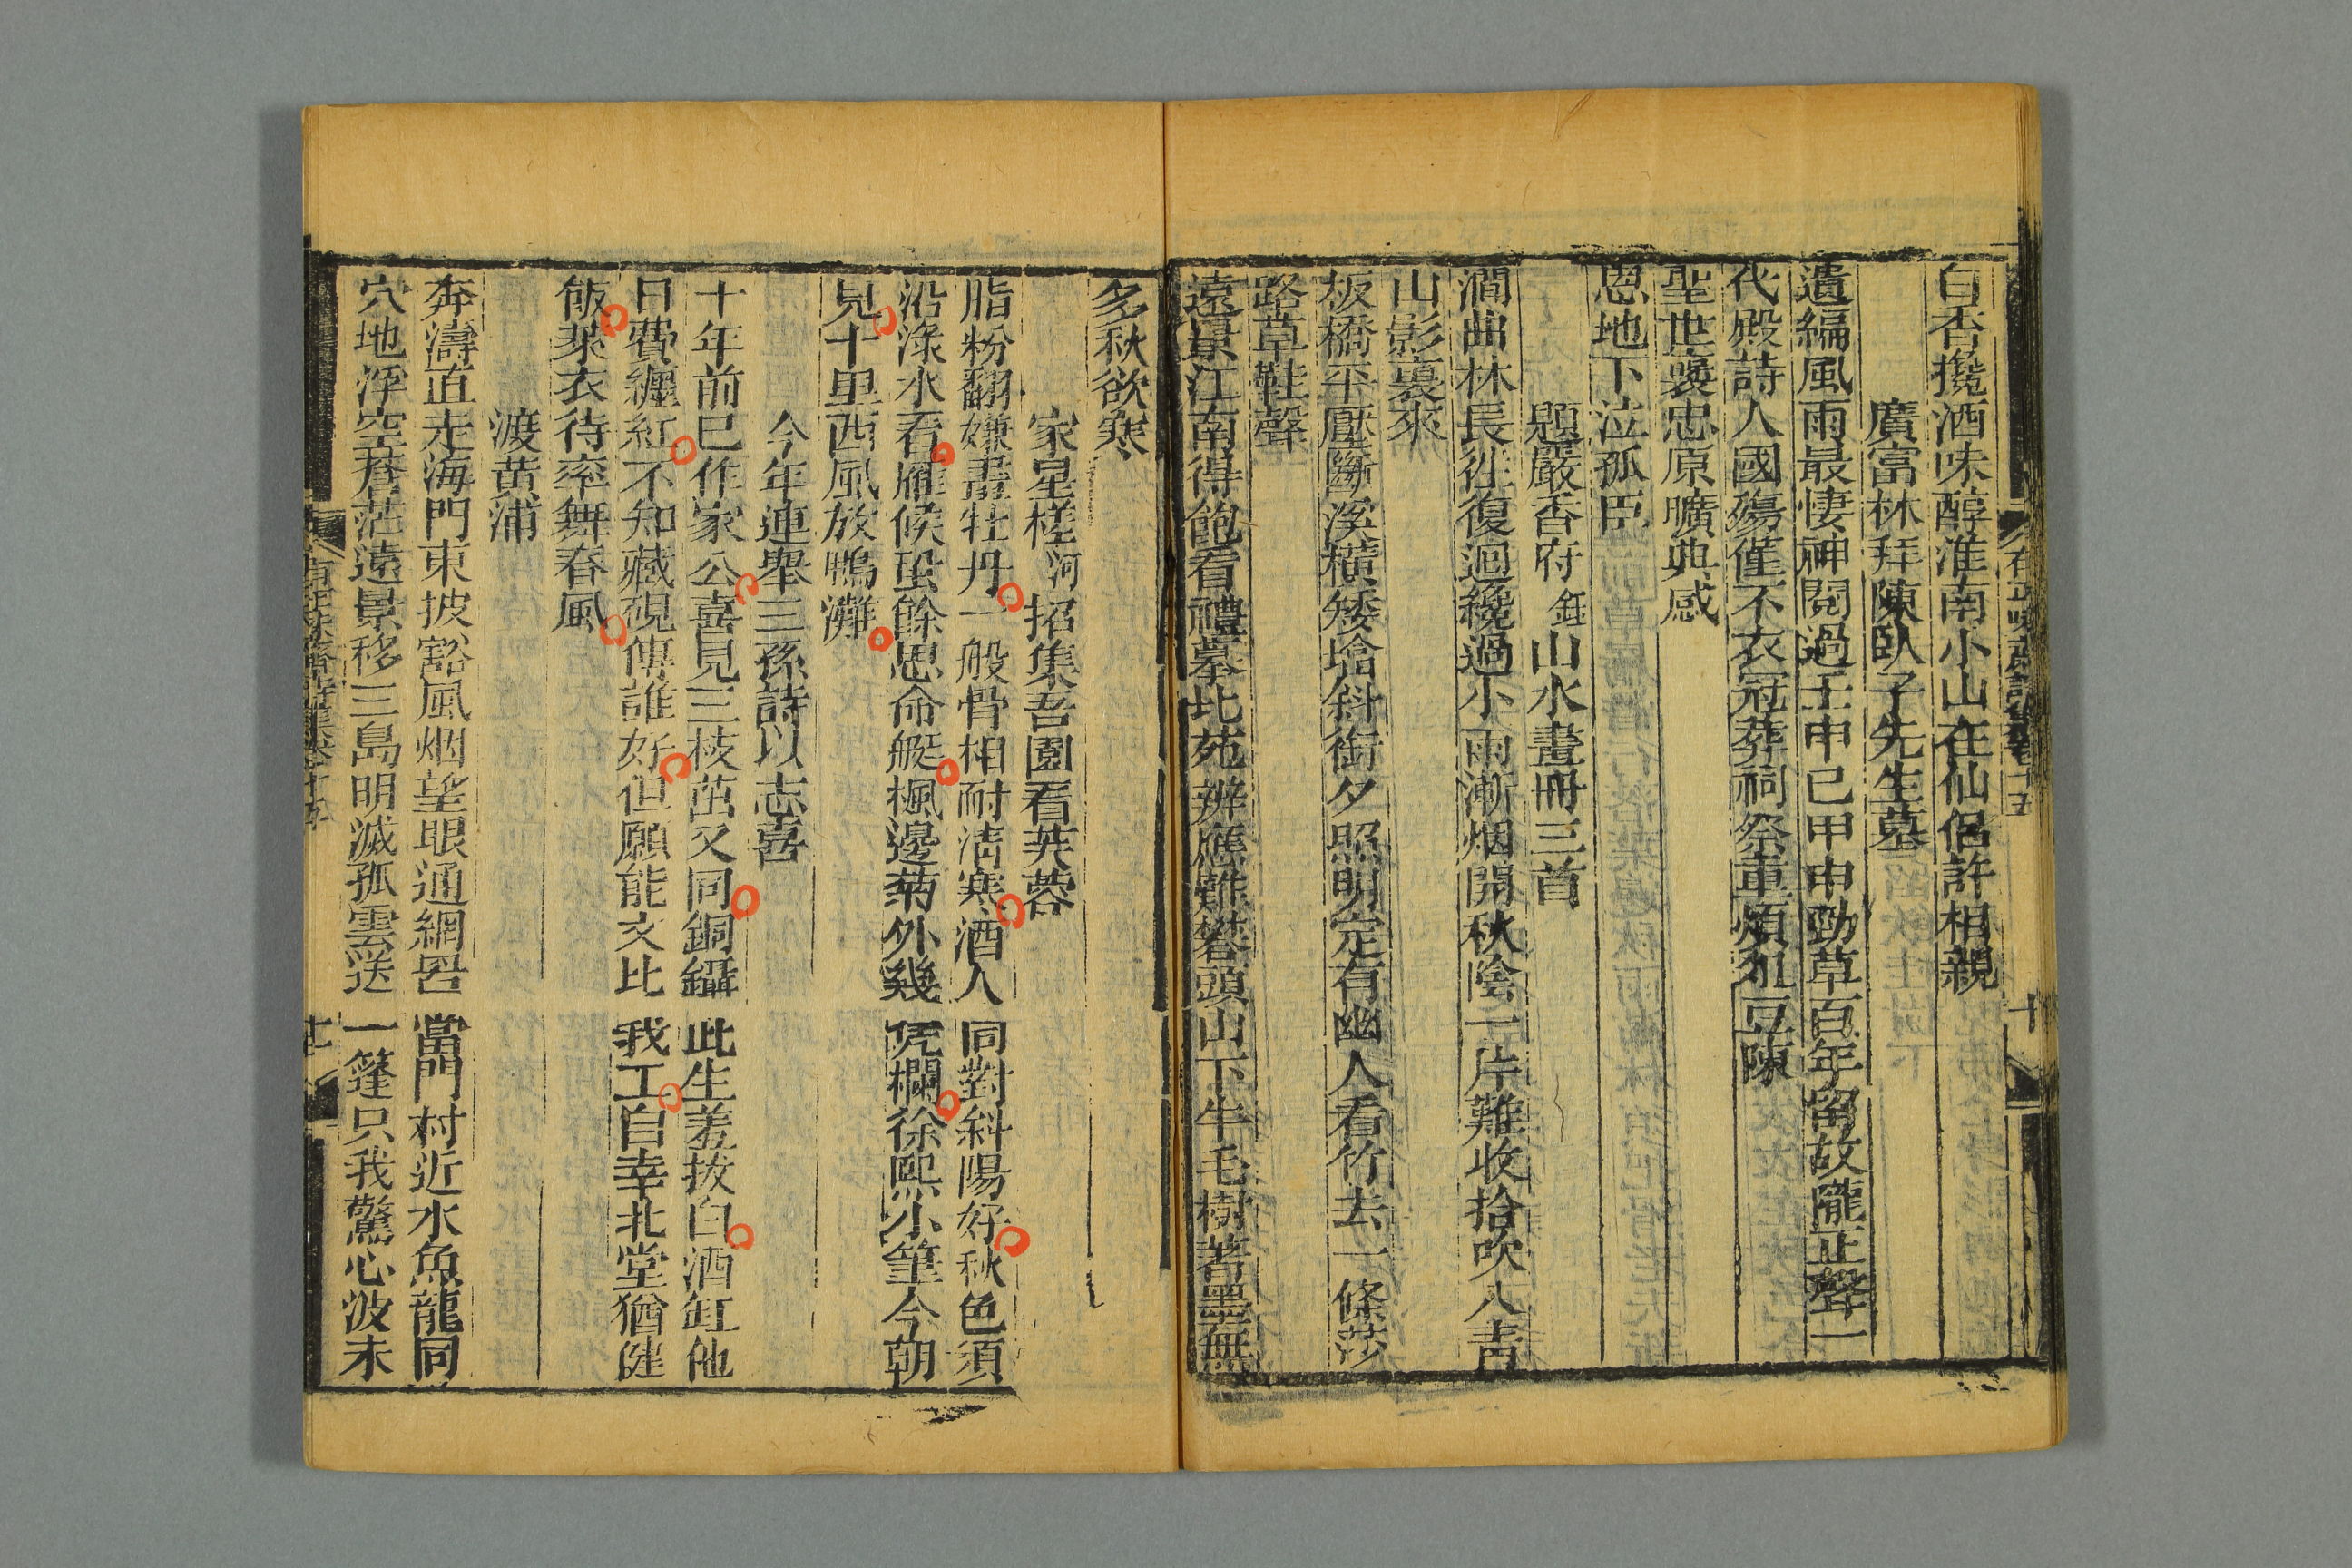 白杏攙酒味醇淮南小山在仙侶許相親
廣富林拜陳臥子先生墓
遺編風雨最悽神閱過壬申已甲申勁草百年留故隴正聲一
代殿詩人國殤僅不衣冠葬祠祭重煩俎豆陳
聖世褒忠原曠典感
恩地下泣孤臣
題嚴香府鈺山水畫冊三首
澗曲林長往復迴纔過小雨漸烟開秋陰一片難收拾吹入青
山影裏來
板橋平壓斷溪橫矮墖斜銜夕照明定有幽人看竹去一條莎
路草鞋聲
遠景江南得飽看禮摹北苑辨應難礬頭山下牛毛樹著墨無
多秋欲寒
家星槎河招集吾園看芙蓉
脂粉翻嫌畫牡丹一般骨相耐清寒酒人同對斜陽好秋色須
沿淥水看雁候蛩餘思命艇楓邊菊外幾凭欄徐熙小筆今朝
見十里西風放鴨灘
今年連舉三孫詩以志喜
十年前已作家公喜見三枝茁又同銅鑷此生羞拔白酒缸他
日費纏紅不知藏硯傳誰好但願能文比我工自幸北堂猶健
飯萊衣待率舞春風
渡黃浦
奔濤直走海門東披豁風烟望眼通網罟當門村近水魚龍同
穴地浮空蒼茫遠景移三島明滅孤雲送一篷只我驚心波未